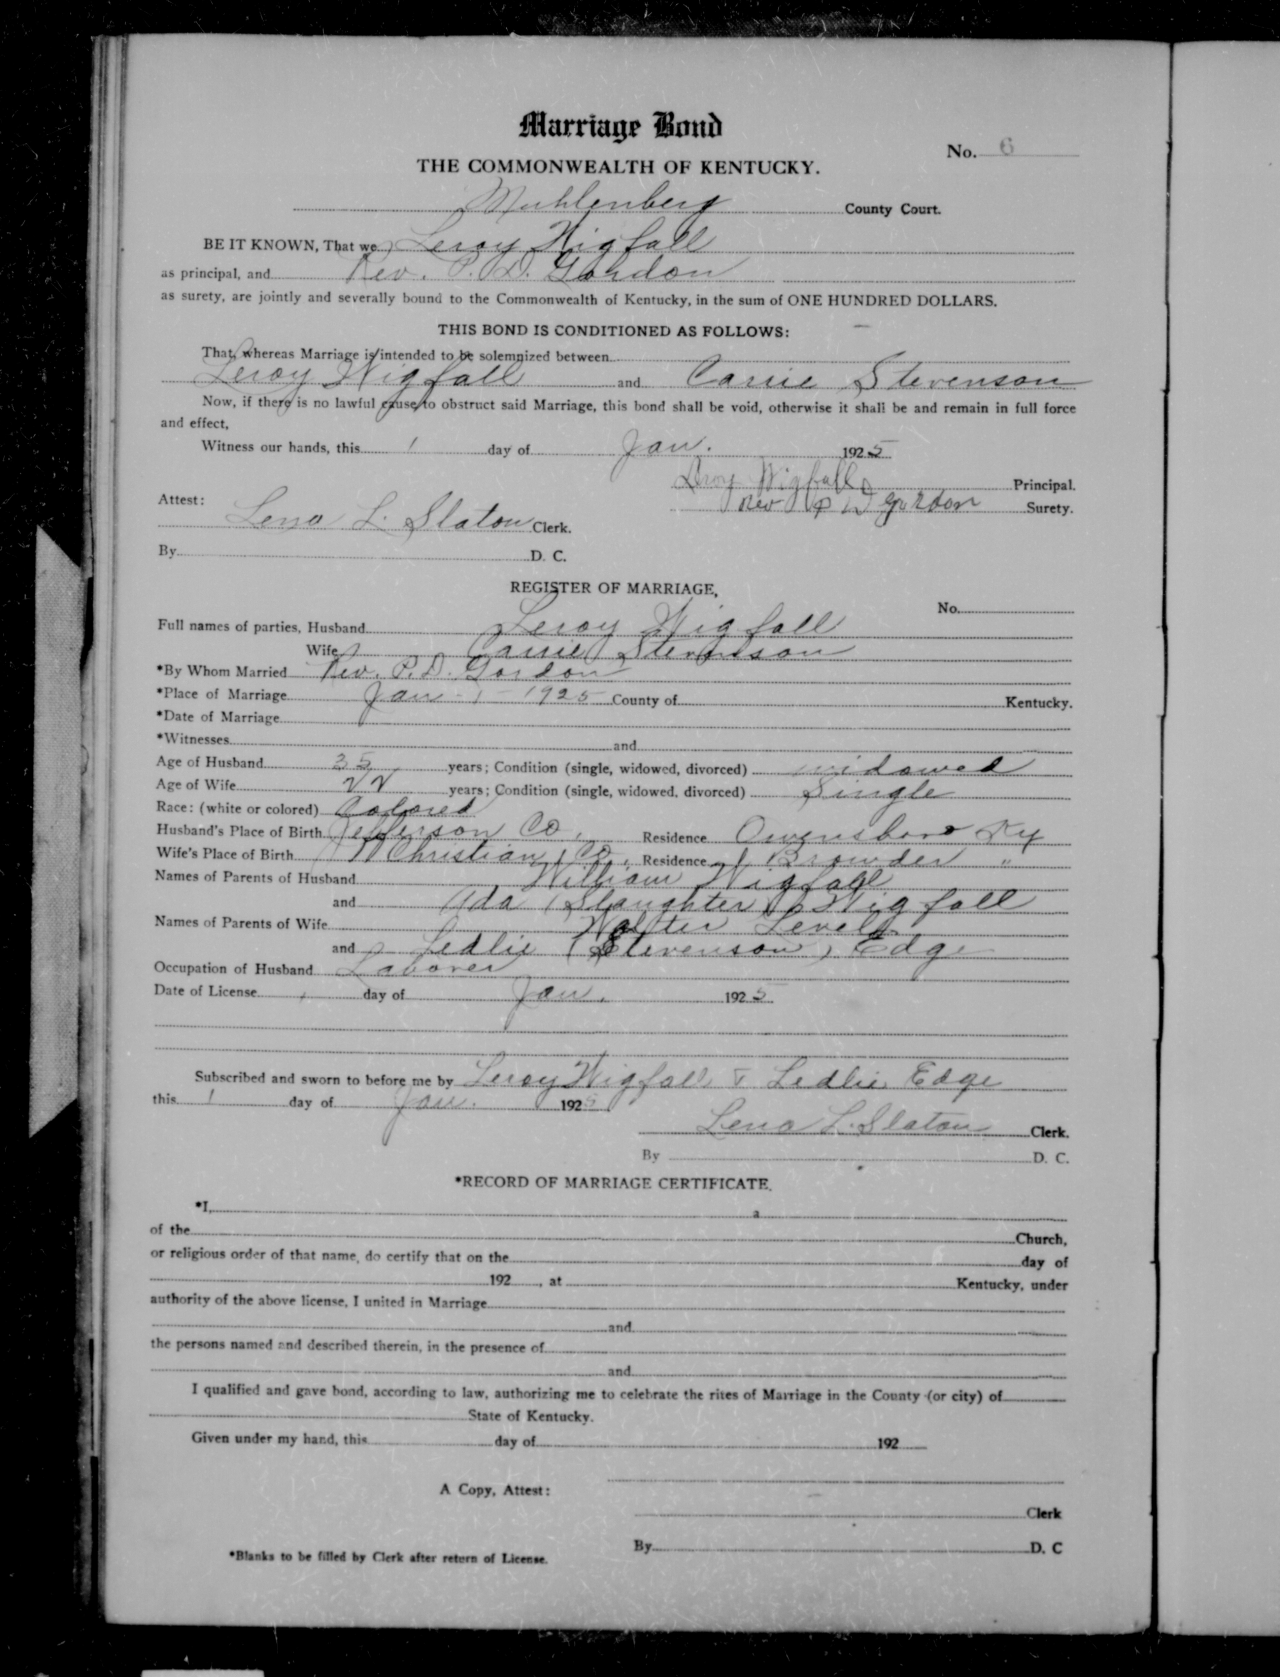 Marriage Bond
No. 6
THE COMMONWEALTH OF KENTUCKY.
Muhlenberg County Court.
BE IT KNOWN, That we Leroy Wigfall
as principal, and Rev. P. D. Gordon
as surety, are jointly and severally bound to the Commonwealth of Kentucky, in the sum of ONE HUNDRED DOLLARS.
THIS BOND IS CONDITIONED AS FOLLOWS:
That, whereas Marriage is intended to be solemnized between
Leroy Wigfall and Carrie Stevenson
Now, if there is no lawful cause to obstruct said Marriage, this bond shall be void, otherwise it shall be and remain in full force
and effect,
Witness our hands, this 1 day of Jan. 1925
Leroy Wigfall Principal.
Rev P D Gordon Surety.
Attest:
Lena L. Slaton Clerk.
By D. C.
REGISTER OF MARRIAGE,
No.
Full names of parties, Husband Leroy Wigfall
Wife Carrie Stevenson
*By Whom Married Rev. P. D. Gordon
*Place of Marriage Jan - 1 - 1925 County of Kentucky.
*Date of Marriage
*Witnesses and
Age of Husband 35 years; Condition (single, widowed, divorced) widowed
Age of Wife 22 years; Condition (single, widowed, divorced) Single
Race: (white or colored) Colored
Husband's Place of Birth Jefferson Co. Residence Owensboro Ky
Wife's Place of Birth Christian Co. Residence Browder "
Names of Parents of Husband William Wigfall
and Ada (Slaughter) Wigfall
Names of Parents of Wife Walter Levell
and Ledlie (Stevenson) Edge
Occupation of Husband Laborer
Date of License 1 day of Jan. 1925
Subscribed and sworn to before me by Leroy Wigfall & Ledlie Edge
this 1 day of Jan. 1925
Lena L. Slaton Clerk.
By D. C.
*RECORD OF MARRIAGE CERTIFICATE.
*I, a
of the Church,
or religious order of that name, do certify that on the day of
192 , at Kentucky, under
authority of the above license, I united in Marriage
and
the persons named and described therein, in the presence of
and
I qualified and gave bond, according to law, authorizing me to celebrate the rites of Marriage in the County (or city) of
State of Kentucky.
Given under my hand, this day of 192
A Copy, Attest:
Clerk
By D. C
*Blanks to be filled by Clerk after return of License.